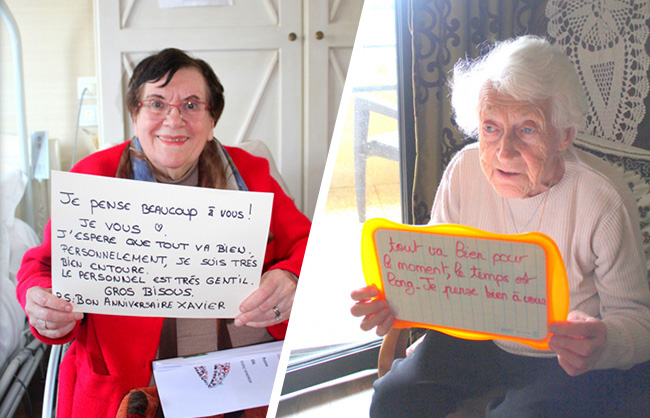 JE PENSE BEAUCOUP À VOUS !
JE VOUS ♡.
J'ESPERE QUE TOUT VA BIEN.
PERSONNELEMENT, JE SUIS TRÉS
BIEN ENTOURE.
LE PERSONNEL EST TRÉS GENTIL.
GROS BISOUS.
PS: BON ANNIVERSAIRE XAVIER
tout va bien pour
le moment, le temps est
long. Je pense bien à vous